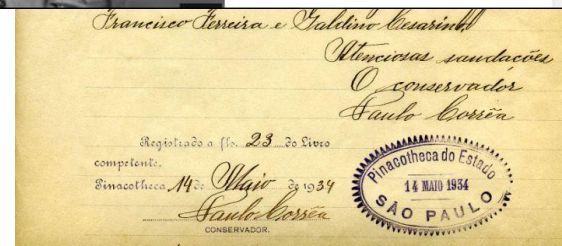 Francisco Ferreira e Galdino Cesarino.
Attenciosas saudacões
O conservador
Paulo Corrêa
Registrado a fls. 23 do Livro
competente.
Pinacotheca, 14 de Maio de 1934
Paulo Corrêa
CONSERVADOR.
Pinacotheca do Estado
14 MAIO 1934
SÃO PAULO